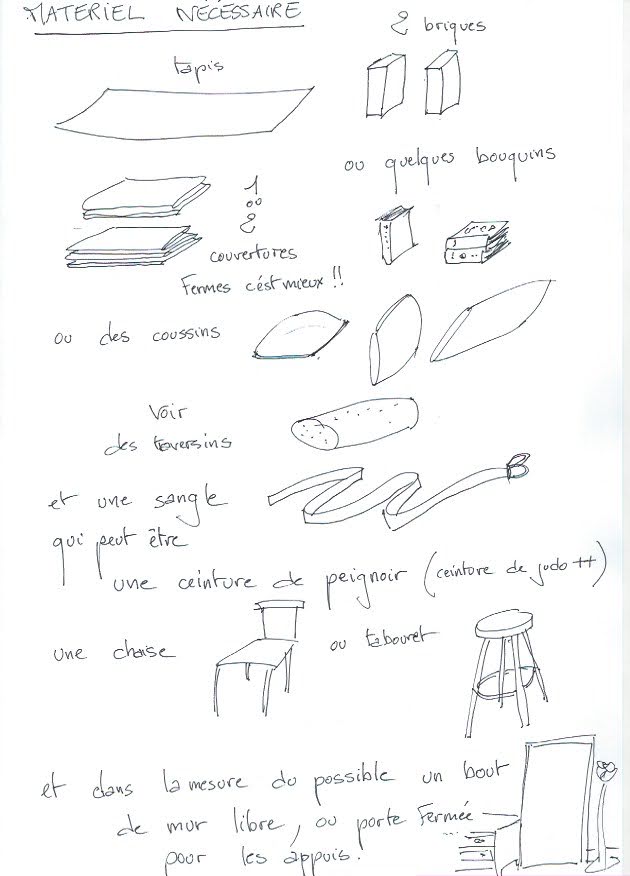 MATERIEL NÉCESSAIRE
2 briques
tapis
ou quelques bouquins
1
ou
2
couvertures
Fermes c'est mieux !!
ou des coussins
Voir
des traversins
et une sangle
qui peut être
une ceinture de peignoir (ceinture de judo ++)
une chaise
ou tabouret
et dans la mesure du possible un bout
de mur libre, ou porte Fermée
pour les appuis.